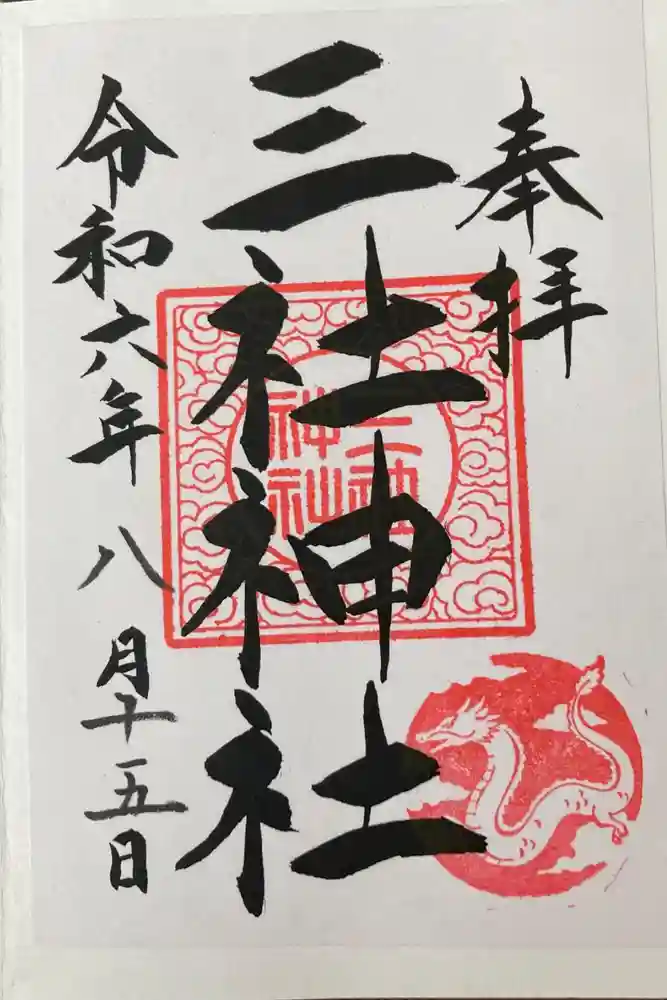 奉拝
三社神社
令和六年八月十五日
三社
神社